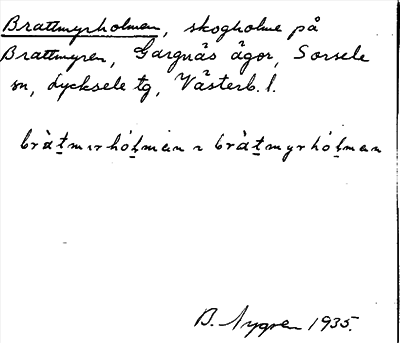 Brattmyrholmen, skogholme på
Brattmyren, Gargnäs ägor, Sorsele
sn, Lycksele tg, Västerb. l.
bràt̠mırhól̠mȧn ~ bràt̠myrhól̠man
B. Nygren 1935.